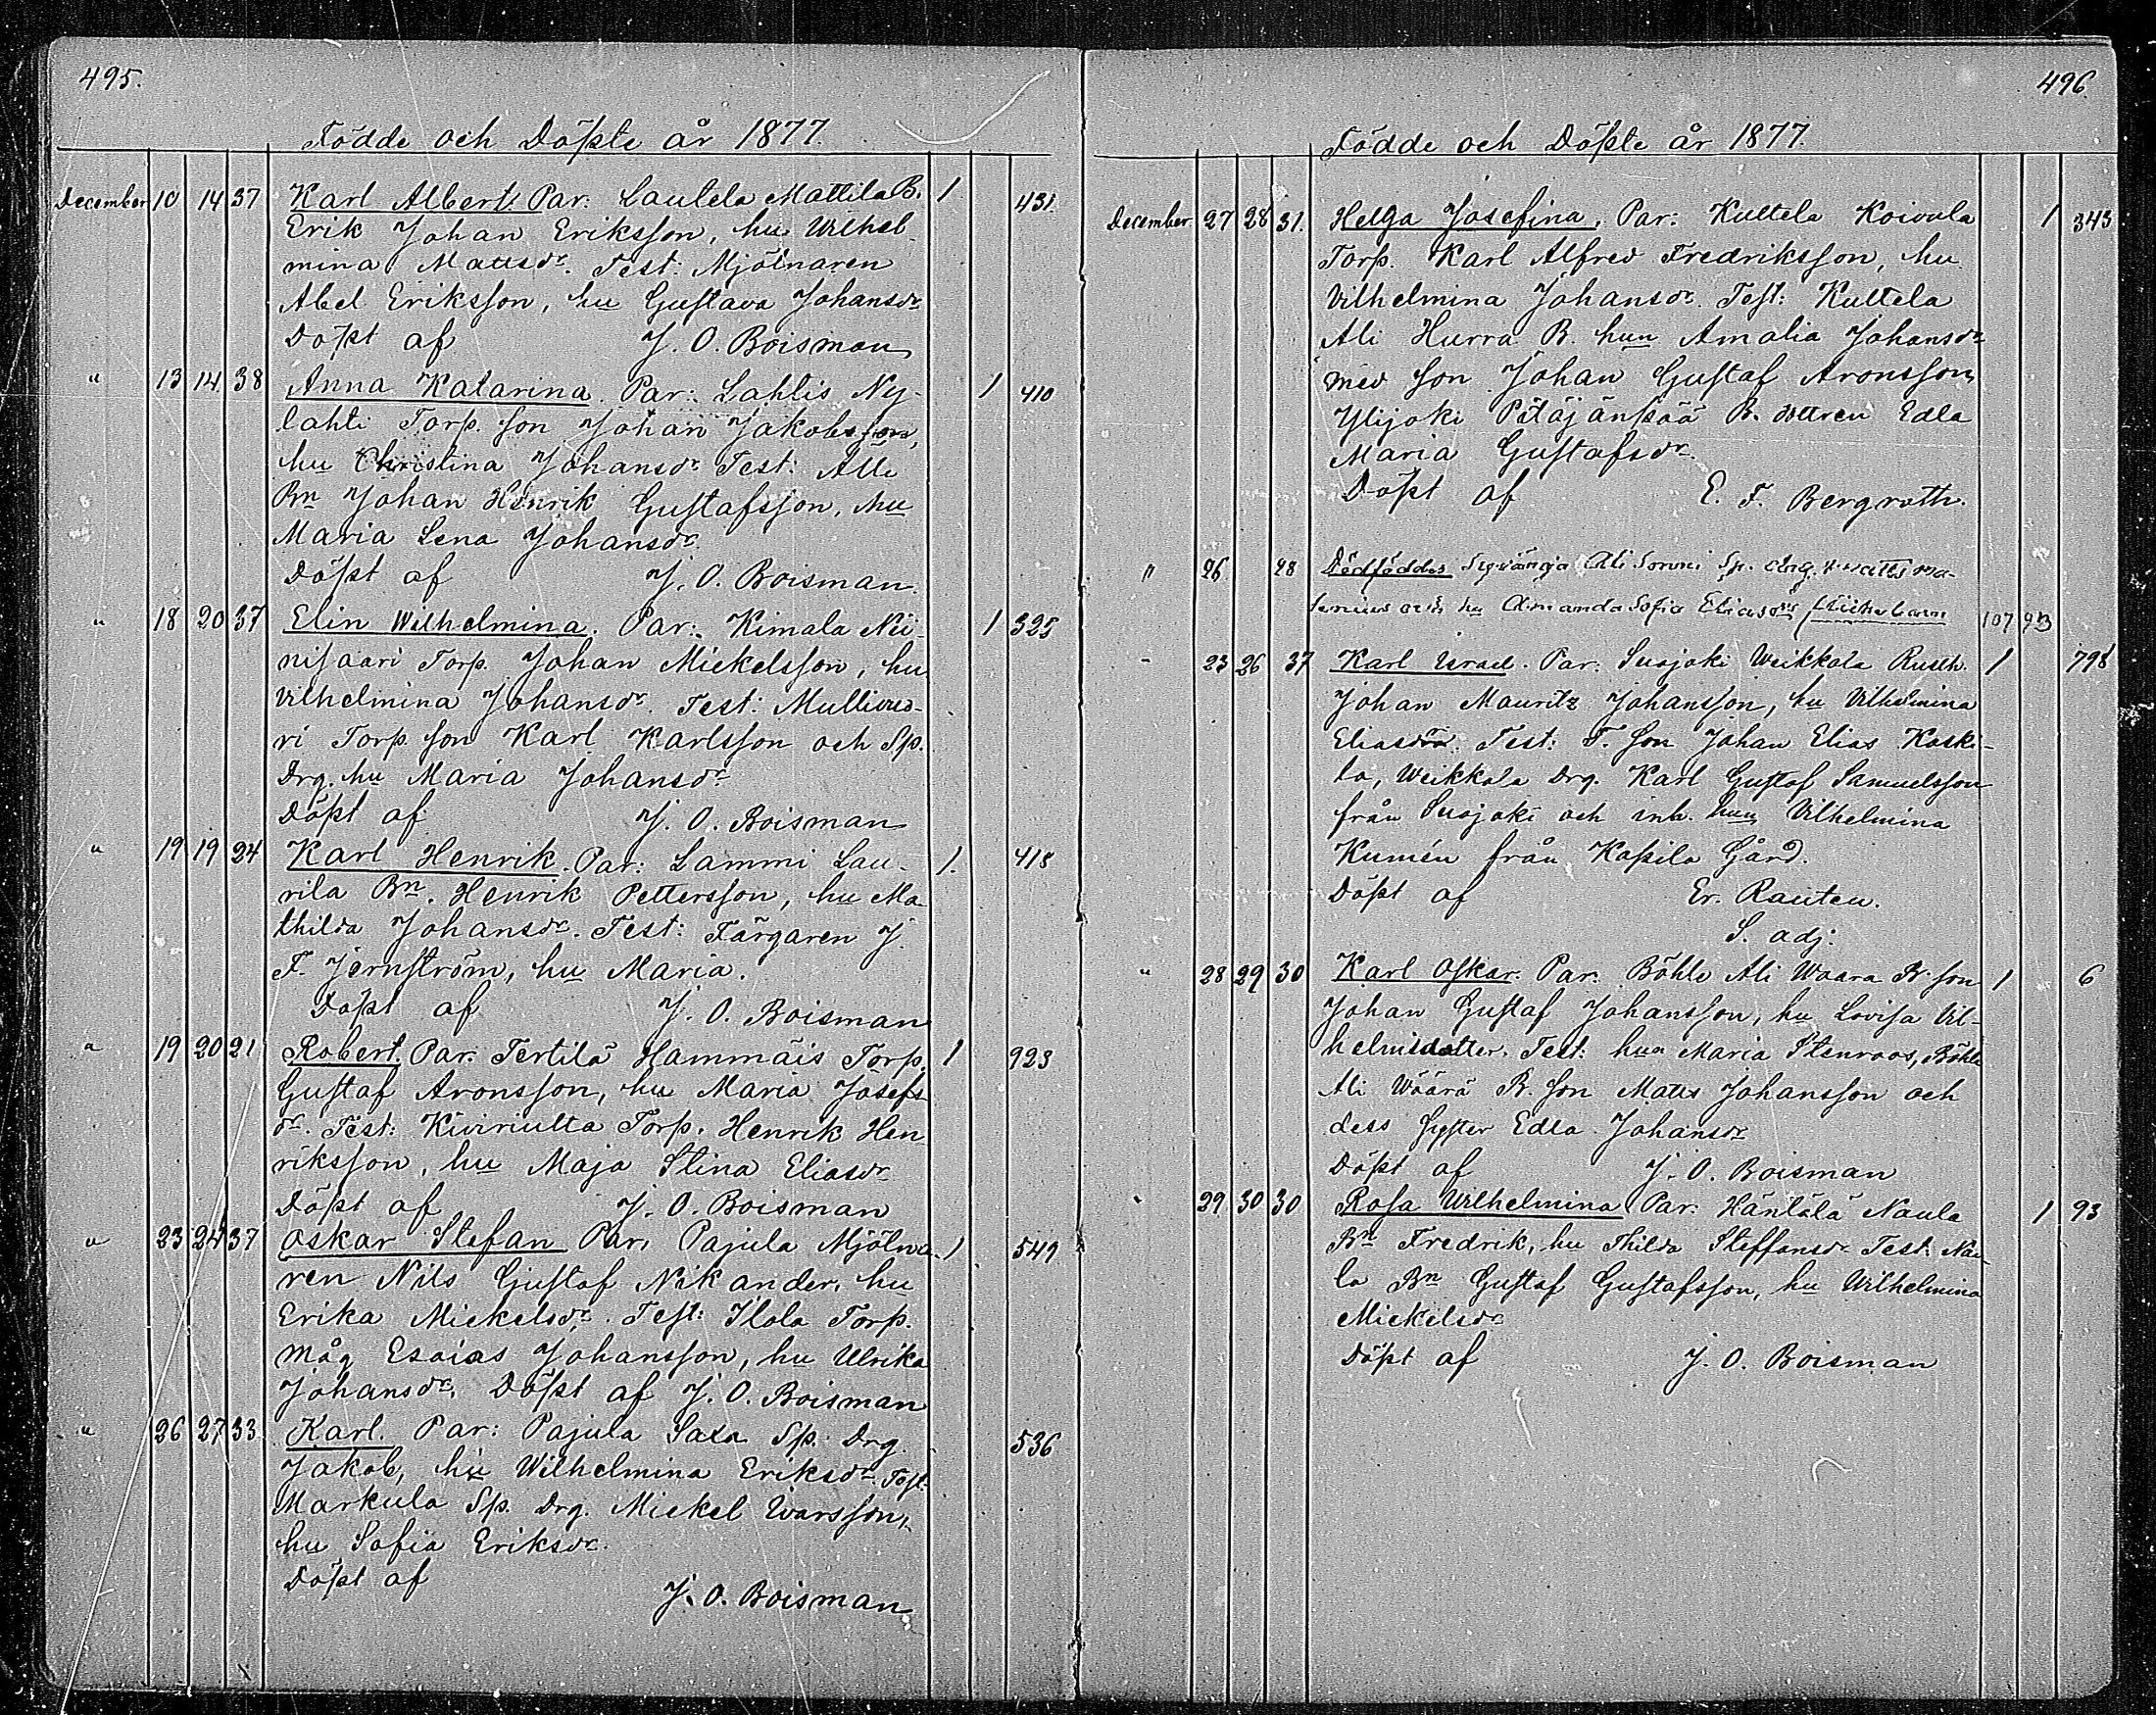 495.
Födde och Döpte år 1877.
December 10 14 37 Karl Albert. Par: Lautela Mattila B. 1 431.
Erik Johan Eriksson, hu Wilhel-
mina Mattsdr. Test: Mjölnaren
Abel Eriksson, hu Gustava Johansdr
Döpt af J. O. Boisman
" 13 14. 38 Anna Katarina. Par: Lahtis Ny- 1 410
lahti Torp. son Johan Jakobsson,
hu Christina Johansdr. Test: Alli
Bn Johan Henrik Gustafsson, hu
Maria Lena Johansdr.
Döpt af J. O. Boisman.
" 18 20 37 Elin Wilhelmina. Par: Kimala Nii- 1 325
nisaari Torp. Johan Mickelsson, hu
Vilhelmina Johansdr. Test: Mullivuo-
ri Torp. son Karl Karlsson och Sp.
Drg. hu Maria Johansdr
Döpt af J. O. Boisman
" 19 19 24 Karl Henrik. Par: Lammi Lau- 1. 418
rila Bn. Henrik Pettersson, hu Ma
thilda Johansdr. Test: Färgaren J.
F. Jernström, hu Maria.
Döpt af J. O. Boisman
" 19 20 21 Robert. Par: Tertilä Hammäis Torp. 1 923
Gustaf Aronsson, hu Maria Josefs
dr. Test: Torp. Henrik Hen
riksson, hu Maja Stina Eliasdr
Döpt af J. O. Boisman
" 23 24 37 Oskar Stefan Par: Pajula Mjölna- 1 549
ren Nils Gustaf Nikander, hu
Erika Mickelsdr. Test: Ilola Torp.
måg Esaias Johansson, hu Ulrika
Johansdr. Döpt af J. O. Boisman
" 26 27 33 Karl. Par: Pajula Saxa Sp. Drg. 536
Jakob, hu Wilhelmina Eriksdr. Test.
Markula Sp. Drg. Mickel Ivarsson,
hu Sofia Eriksdr.
Döpt af
J. O. Boisman
496.
Födde och Döpte år 1877.
December. 27 28 31. Helga Josefina. Par: Kultela Koivula 1 343
Torp. Karl Alfred Fredriksson, hu
Vilhelmina Johansdr. Test: Kultela
Ali Hurra B. hun Amalia Johansdr
med son Johan Gustaf Aronsson,
Ylijoki Pitäjänpää B. dttren Edla
Maria Gustafsdr.
Döpt af E. F. Bergroth.
" 26 28 Dödföddes Ali Sp. drg.
och hu Amanda Sofia Eliasdrs 107 93
" 23 26 37 Karl Israel. Par: Suojoki Weikkola Rusth. 1 798
Johan Mauritz Johansson, hu Vilhelmina
Eliasdr. Test: T. son Johan Elias Koski-
la, Weikkola Drg. Karl Gustaf Samuelsson
från Suojoki och inh. hun Vilhelmina
Kumén från Kapila Gård.
Döpt af Er. Rauten.
S. adj.
" 28 29 30 Karl Oskar. Par: Böhle Ali Waara B. son 1 6
Johan Gustaf Johansson, hu Lovisa Vil-
helmsdotter. Test: hun Maria Stenroos, Böhle
Ali Wäärä B. son Matts Johansson och
dess syster Edla Johansdr
Döpt af J. O. Boisman
" 29 30 30 Rosa Wilhelmina Par: Hänilälä Naula 1 93
Bn Fredrik, hu Thilda Steffansdr Test: Nau-
la Bn Gustaf Gustafsson, hu Wilhelmina
Mickelsdr
Döpt af J. O. Boisman